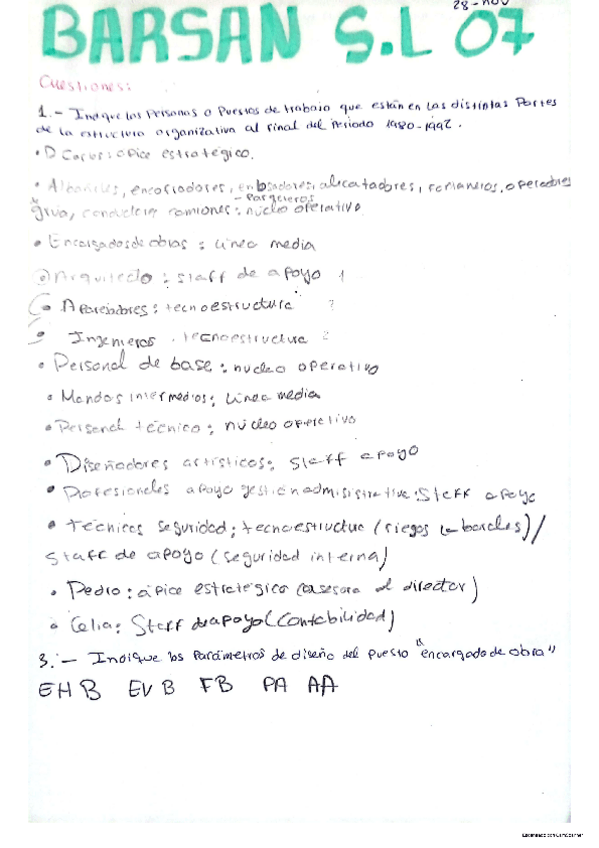 28-NOV
BARSAN S.L 07
Cuestiones:
1.- Indique las Personas o Puestos de trabajo que están en las distintas Partes
de la estructura organizativa al final del Periodo 1980-1992.
• D Carlos: ápice estratégico.
• Albañiles, encofradores, alicatadores, operadores
- Parqueteros
grúa, conductores camiones: núcleo operativo
• Encargados de obras: Línea media
Arquitecto: staff de apoyo 1
• Aparejadores: tecnoestructura ?
• Ingenieros. tecnoestructura 2
• Personal de base: nucleo operativo
• Mandos intermedios: Línea media
• Personal técnico: núcleo operativo
• Diseñadores artísticos: Staff apoyo
• Profesionales apoyo gestión administrativa: Staff apoyo
• Técnicos seguridad: tecnoestructura (riegos laborales)/
staff de apoyo (seguridad interna)
• Pedro: ápice estratégico (asesora al director)
• Celia: Staff de apoyo (Contabilidad)
3.- Indique los Parámetros de diseño del Puesto "encargado de obra"
EH B EV B FB PA AA